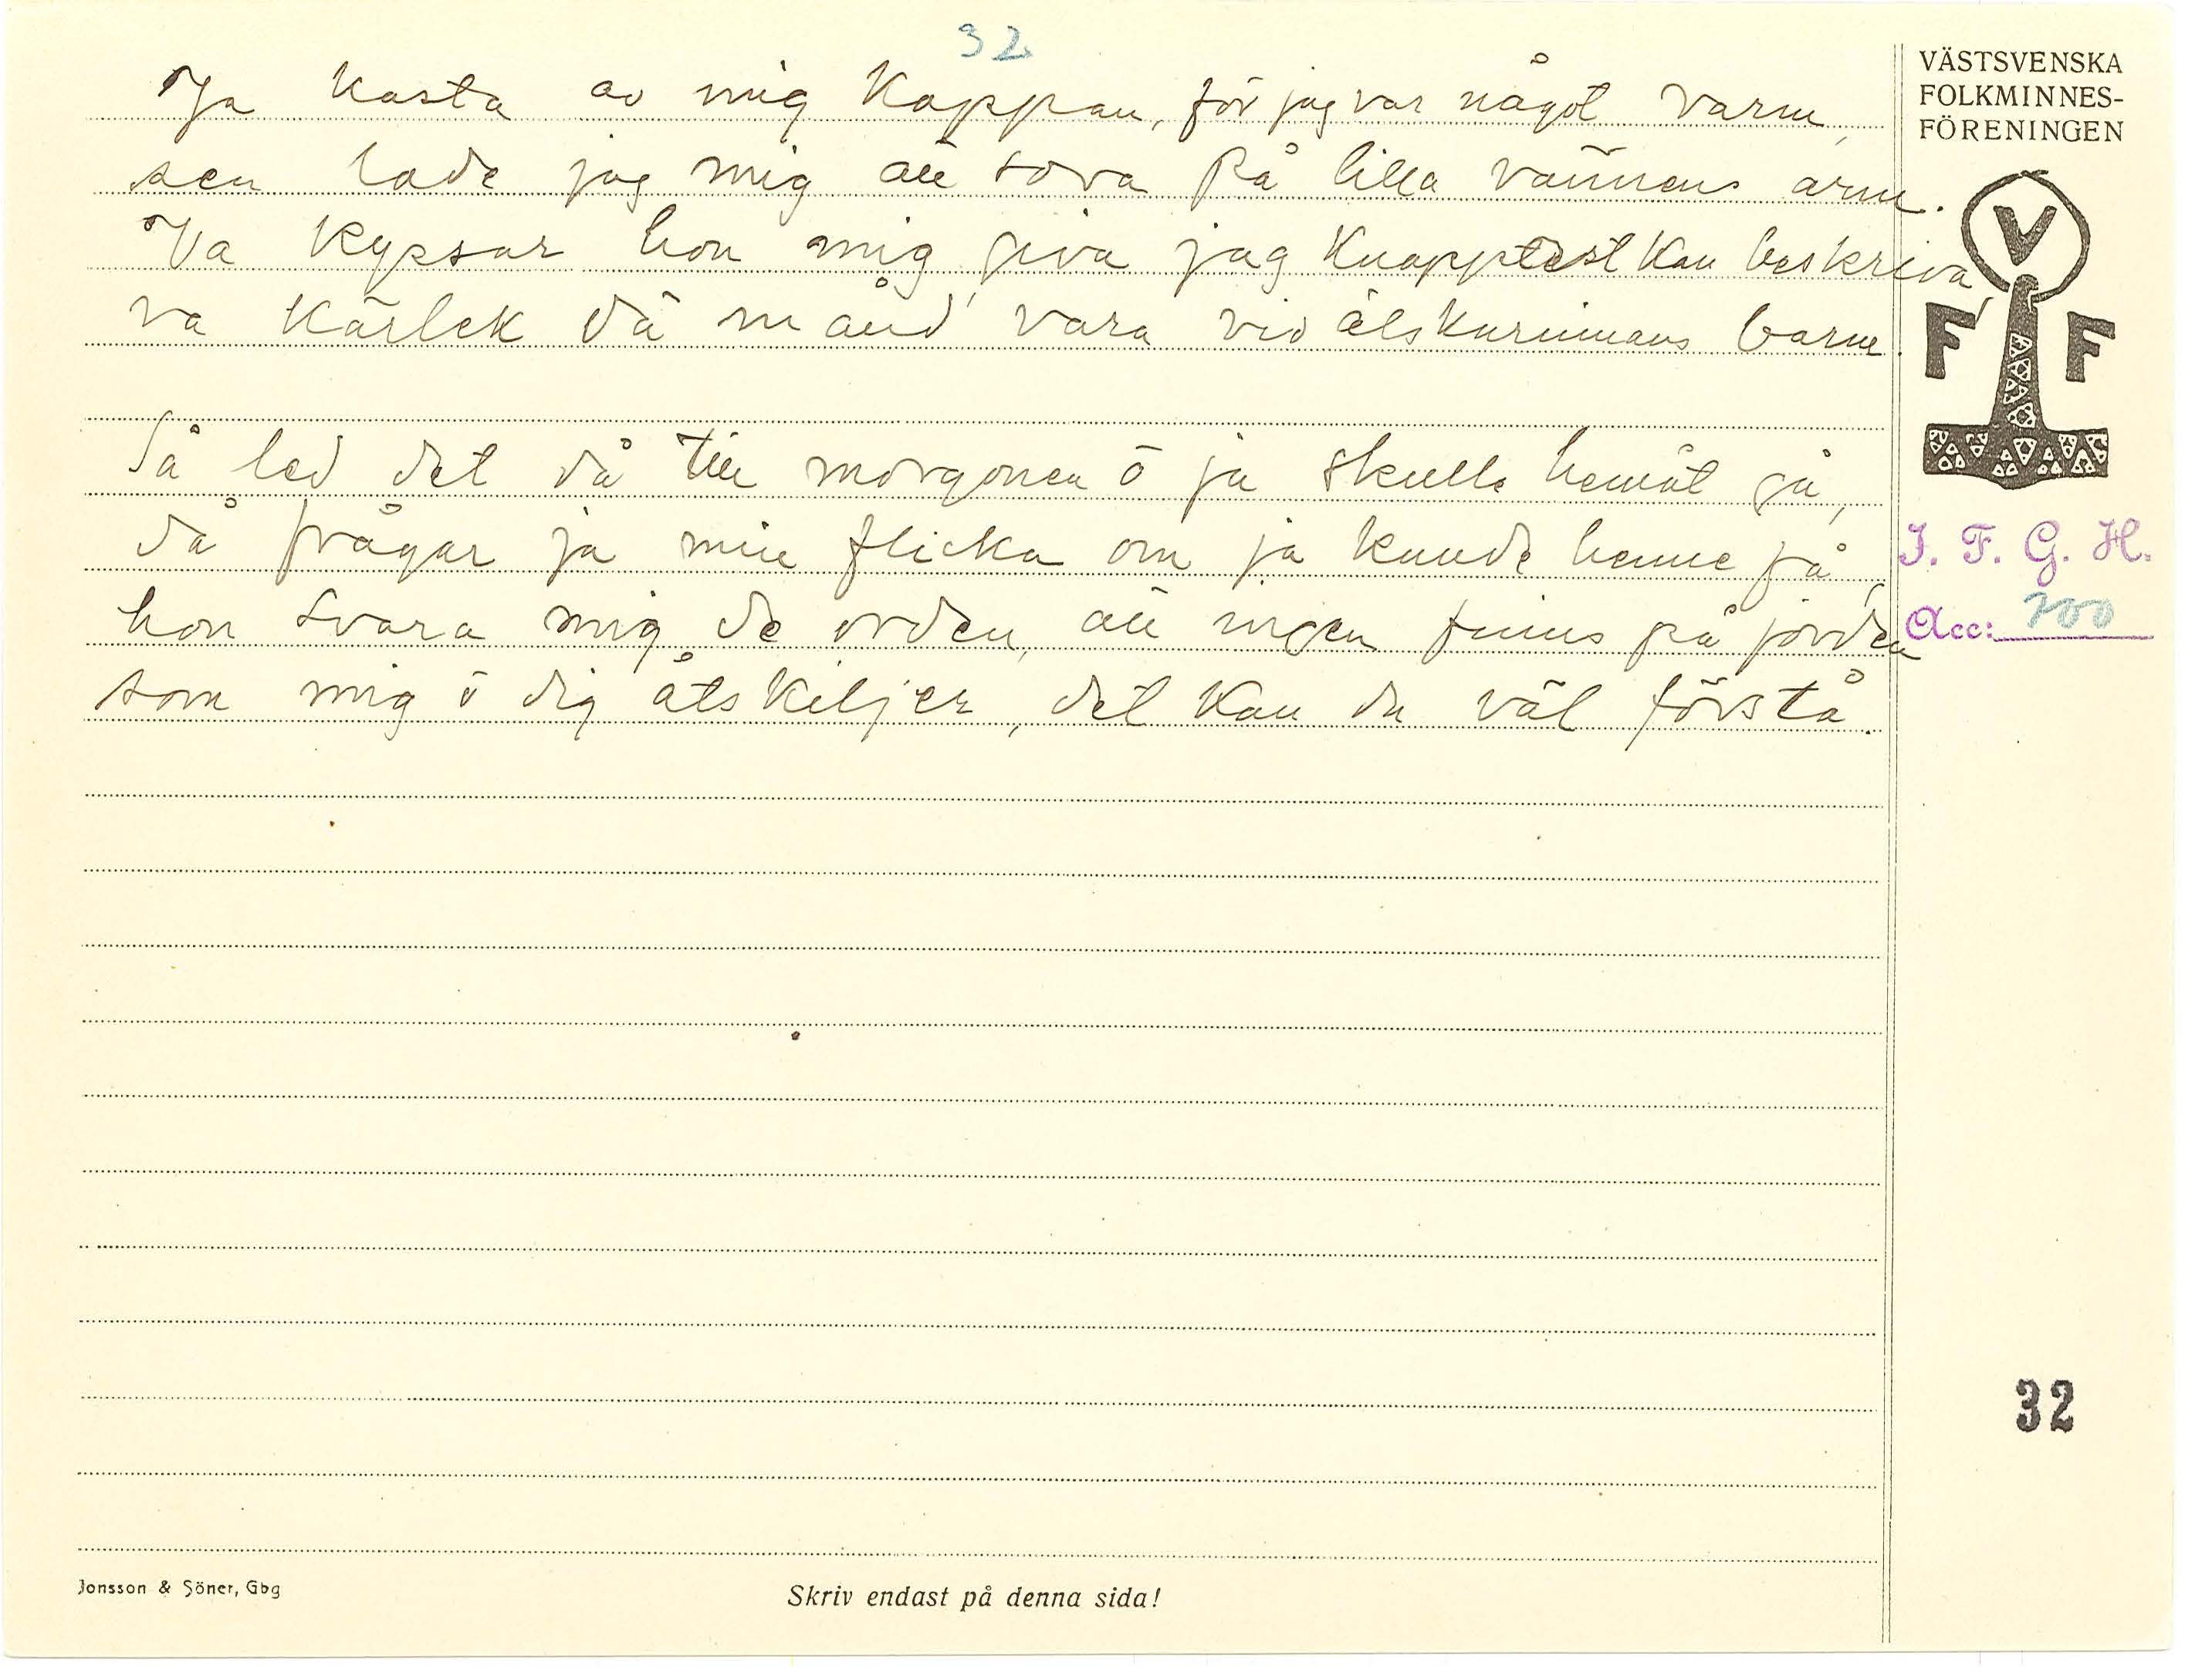 32
Ja kasta av mig kappan, för jag var något varm,
sen lade jag mig att sova på lilla vännens arm.
Va kyssar hon mig giva jag knappast kan beskriva,
va kärlek då månd' vara vid älskarinnans barm.
Så led det då till morgonen ö ja skulle hemåt gå,
då frågar ja min flicka om ja kunde henne få,
hon svara mig de orden, att ingen finns på jorden
som mig ö dig åtskiljer, det kan du väl förstå.
VÄSTSVENSKA
FOLKMINNES-
FÖRENINGEN
V
F F
I. F. G. H.
Acc: 700
32
Jonsson & Söner, Gbg
Skriv endast på denna sida!